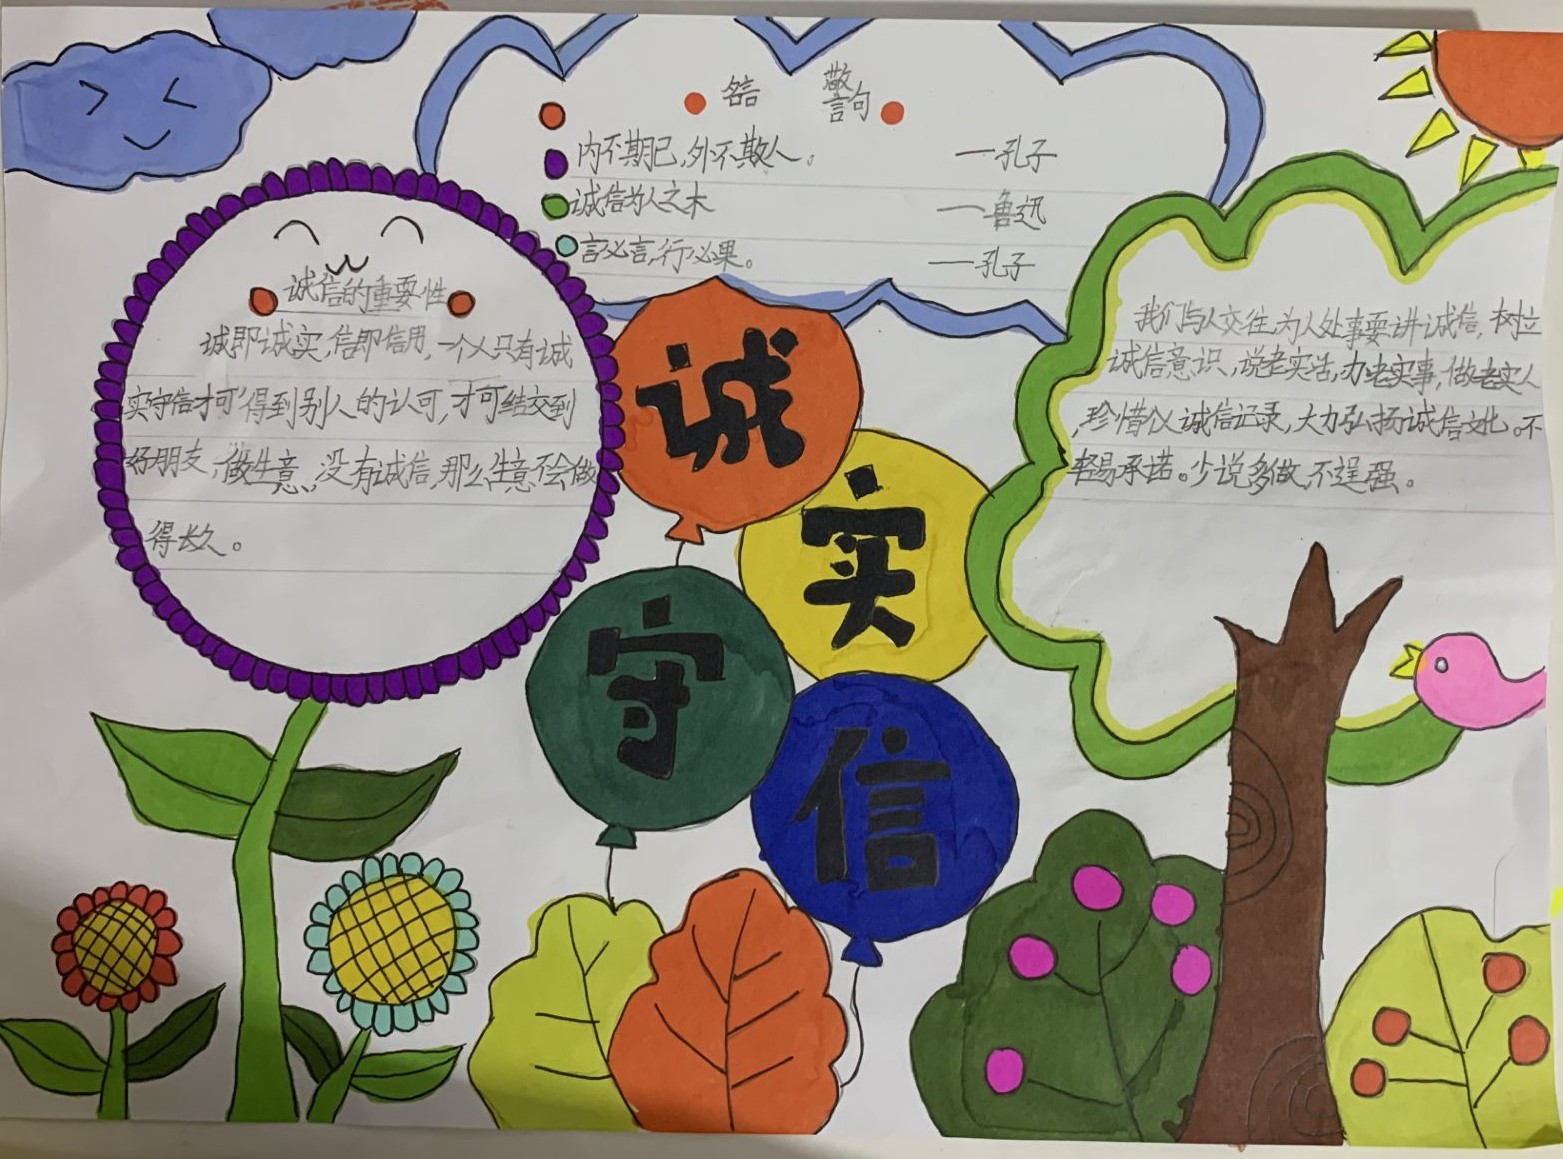 名言 警句
内不期己,外不欺人。 一孔子
诚信为人之木 一鲁迅
言必言,行必果。 一孔子
诚信的重要性
诚即诚实,信即信用,一个人只有诚
实守信才可得到别人的认可,才可结交到
好朋友,做生意,没有诚信,那么生意不会做
得长久。
诚
实
守
信
我们与人交往,为人处事要讲诚信,树立
诚信意识,说老实话,办老实事,做老实人
,珍惜个人诚信记录,大力弘扬诚信文化。不
轻易承诺。少说多做,不逞强。